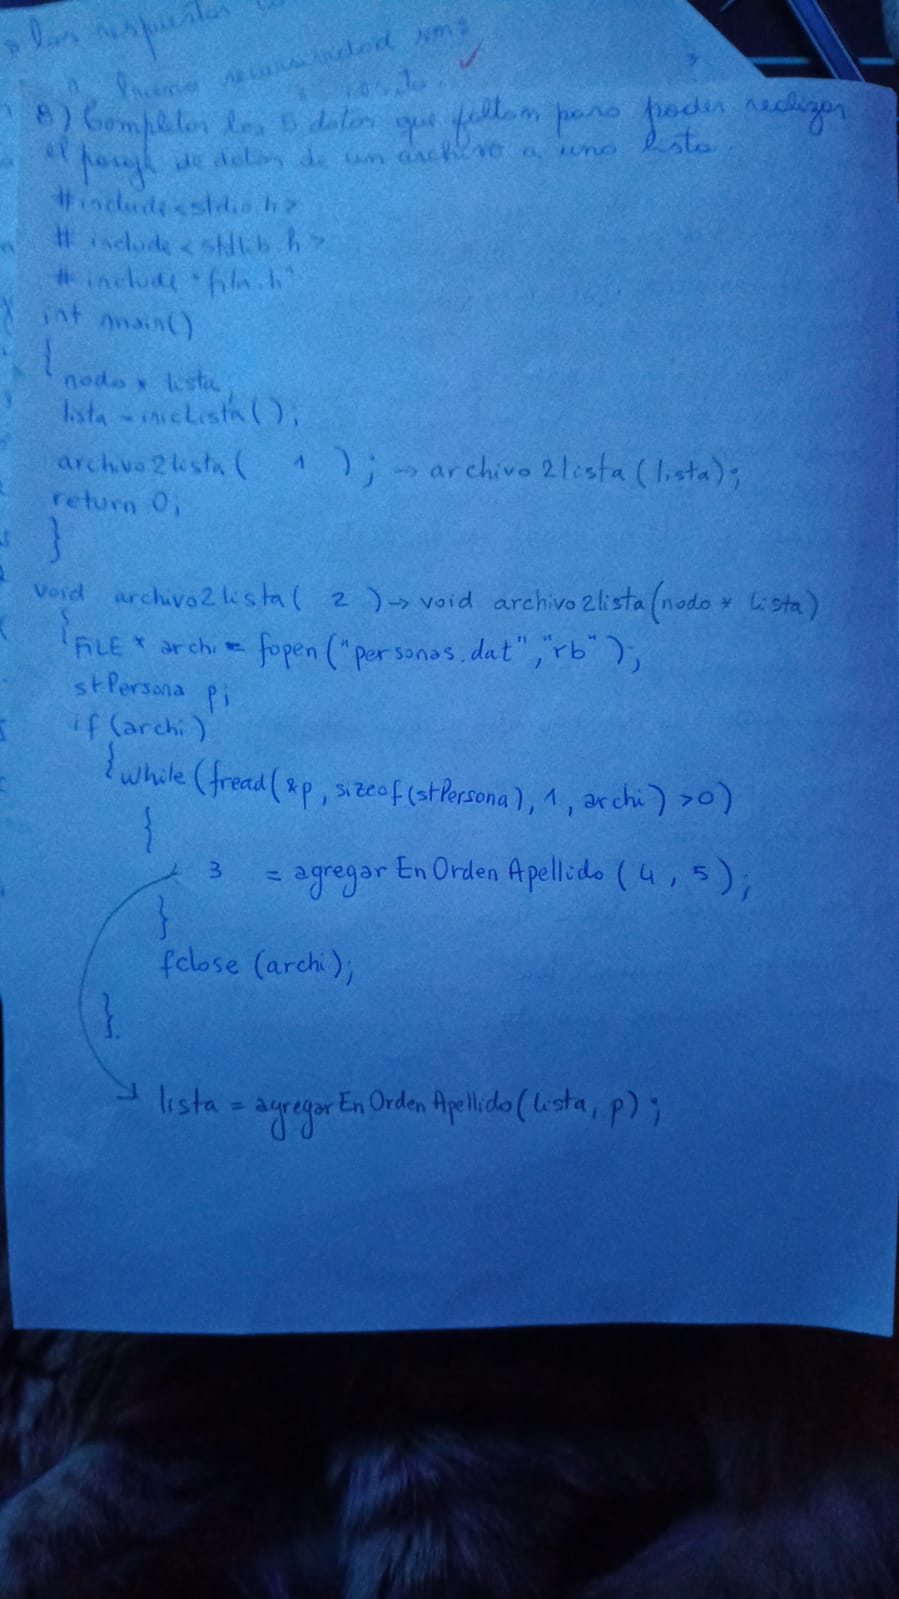 las respuestas
recursividad son:
8) Completar los 5 datos que faltan para poder realizar
el pasaje de datos de un archivo a una lista.
#include<stdio.h>
# include <stdlib.h>
# include "fila.h"
int main()
{
nodo * lista;
lista = inicLista();
archivo2lista( 1 ); → archivo2lista(lista);
return 0;
}
void archivo2lista( 2 ) → void archivo2lista(nodo * lista)
{
FILE * archi = fopen("personas.dat","rb");
stPersona p;
if (archi)
{ while(fread(&p, sizeof(stPersona), 1, archi) >0)
{
3 = agregarEnOrdenApellido (4, 5);
}
fclose (archi);
}
lista = agregarEnOrdenApellido(lista, p);